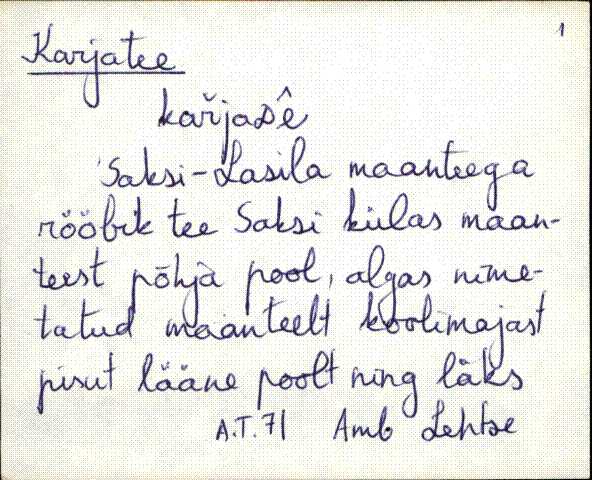 1
Karjatee
kařjaᴅ̀ê
Saksi-Lasila maanteega
rööbik tee Saksi külas maan-
teest põhja pool, algas nime-
tatud maanteelt koolimajast
pisut lääne poolt ning läks
A.T. 71 Amb Lehtse